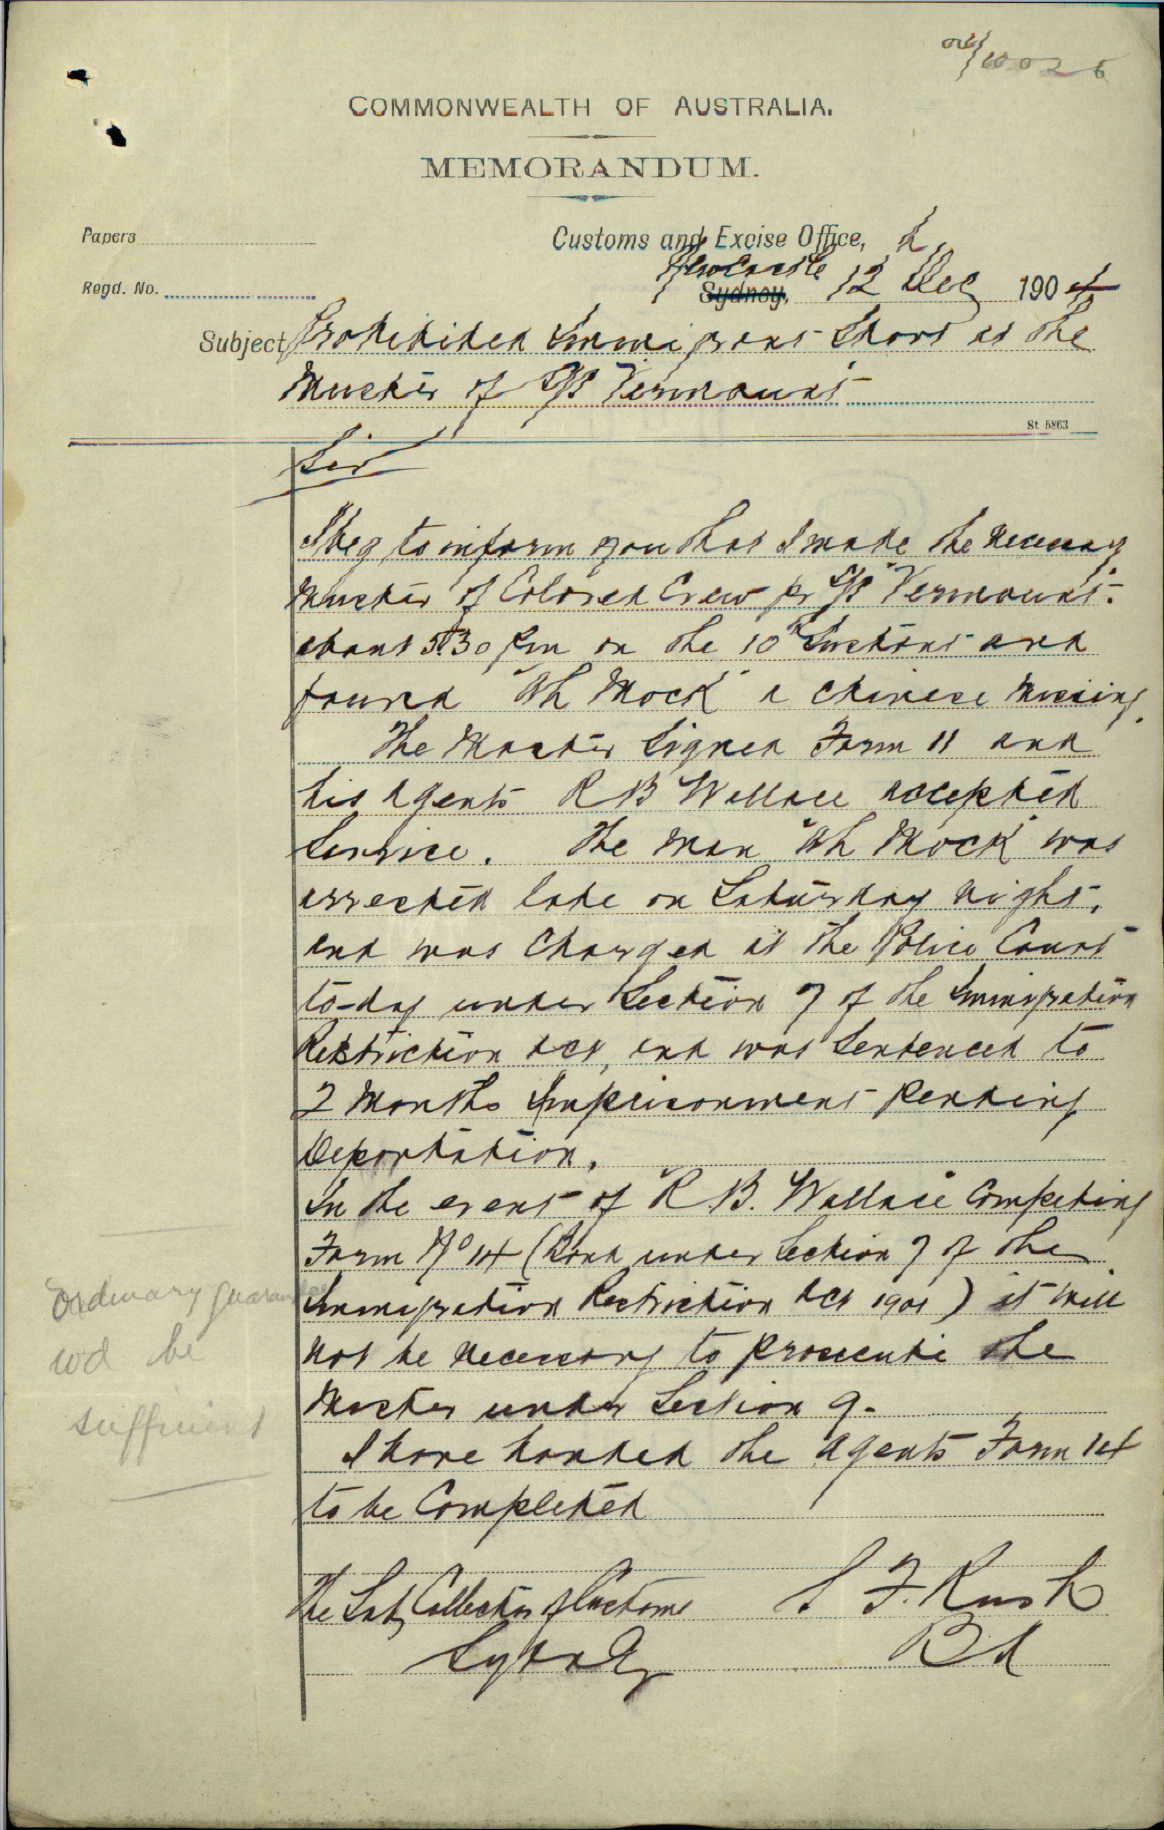 04/10026
COMMONWEALTH OF AUSTRALIA.
MEMORANDUM.
Papers
Customs and Excise Office,
Newcastle
Regd. No.
Sydney, 12 Dec 1904
Subject Prohibited Immigrant Short at the
Muster of S/S Vermount
St 5863
Sir
I beg to inform you that I made the necessary
Muster of Colored Crew pr S/S "Vermount".
about 5.30 pm on the 10th Instant and
found "Ah Mock" a Chinese missing.
The Master Signed Form 11 and
his Agents R B Wallace accepted
Service. The man "Ah Mock" was
arrested late on Saturday night,
and was Charged at the Police Court
to-day under Section 7 of the Immigration
Restriction Act, and was Sentenced to
2 Months Imprisonment Pending
Deportation.
In the event of R.B. Wallace Competing
Form No 14 (Bond under Section 7 of the
Immigration Restriction Act 1901) it will
not be necessary to prosecute the
Master under Section 9.
I have handed the Agents Form 14
to be Completed
Ordinary guarantee
wd be
sufficient
The Sub Collector of Customs
Sydney
S F. Rush